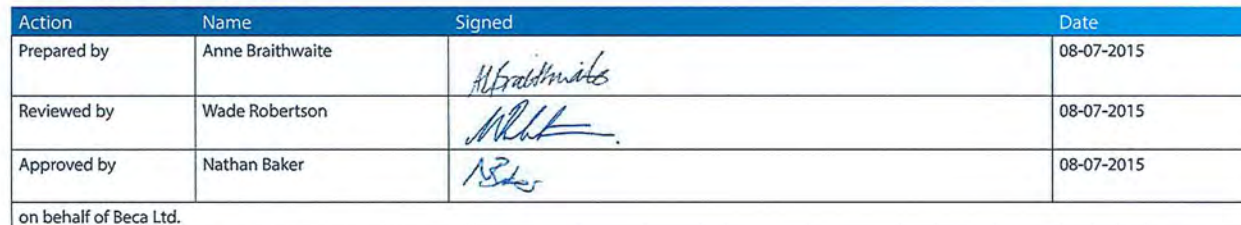 Action Name Signed Date
Prepared by Anne Braithwaite ALBraithwaite 08-07-2015
Reviewed by Wade Robertson 08-07-2015
Approved by Nathan Baker NBaker 08-07-2015
on behalf of Beca Ltd.